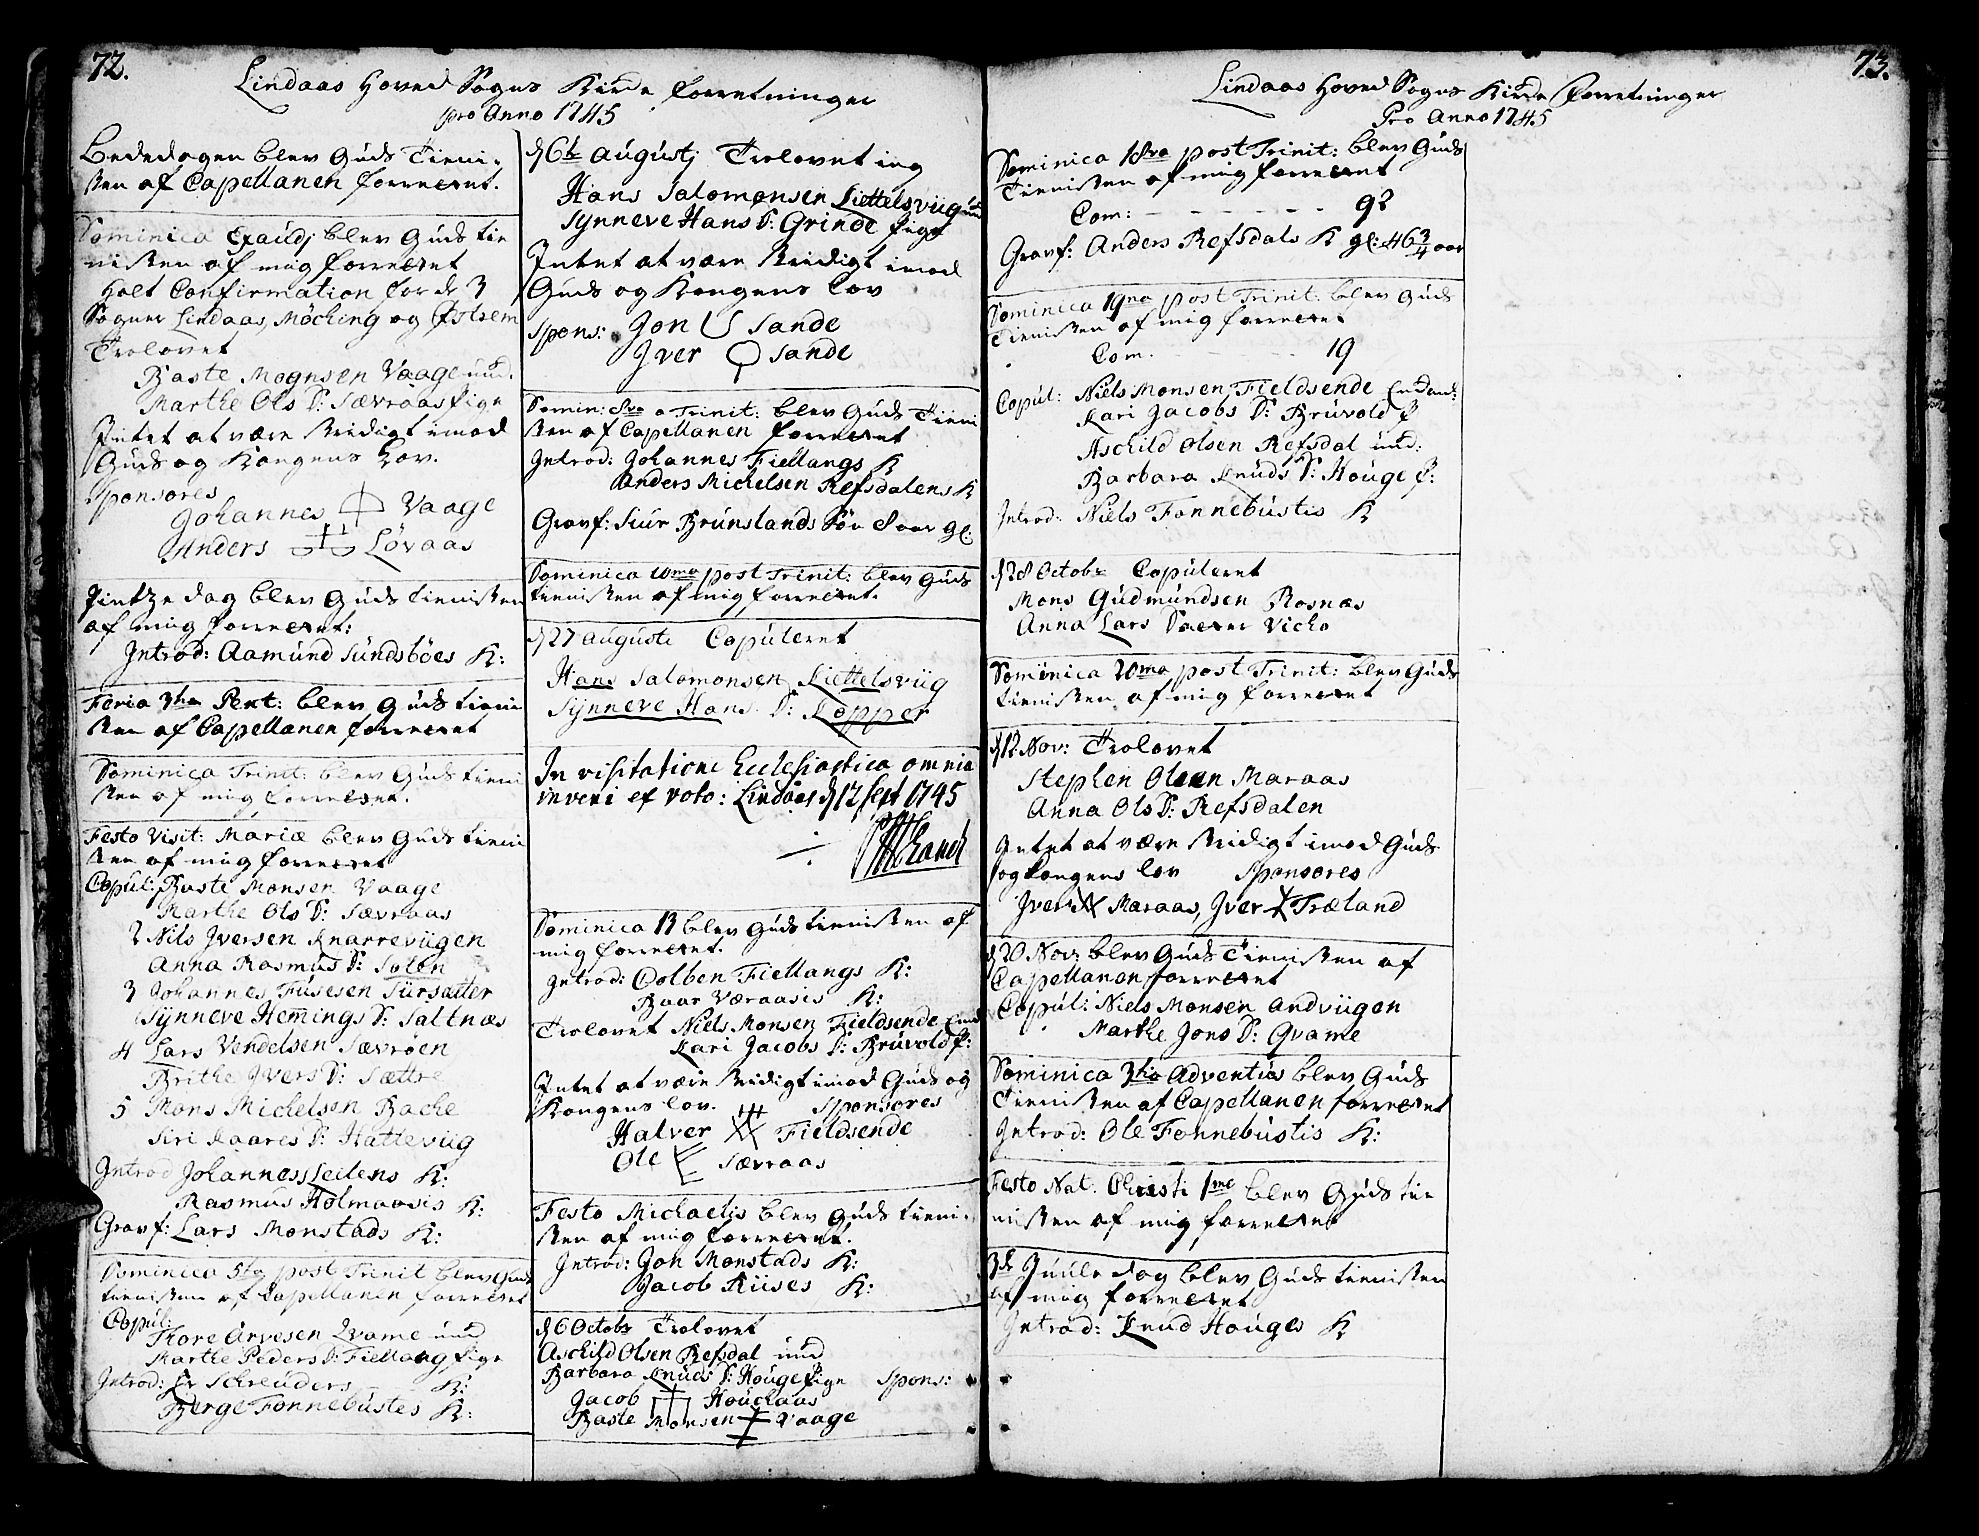 72.
Lindaas Hoved Sogns Kirke forretninger
pro Anno 1745
Bededagen blev Guds Tieni-
sten af Capellanen forrettet.
Dominica Exaudj blev Guds tie
nisten af mig forrettet
holt Confirmation for de 3
Sogner Lindaas, Möching og Østem
Trolovet
Baste Mognsen Vaage und.
Marthe Ols D: Sævraas Pige
Intet at være stridigt imod
Guds og Kongens Lov.
Sponsores
Johannes Vaage
Anders Løvaas
Pintze dag blev Guds tienisten
af mig forrettet:
Introd: Aamund Sundsböes K:
Feria 3tia Pent: blev Guds tieni
sten af Capellanen forrettet
Dominica Trinit: blev Guds tieni
sten af mig forrettet.
Festo Visit: Mariæ blev Guds tieni
sten af mig forrettet
Copul: Baste Monsen Vaage
Marthe Ols D: Sævraas
2 Nils Jversen Knarreviigen
Anna Rasmus D: Solen
3 Johannes Fusesen Sursætter
Synneve Hemings D: Saltnæs
4 Lars Vendelsen Sævröen
Brithe Jvers D: Sættre
5 Mons Michelsen Bache
Siri Kaares D: Hatteviig
Introd Johannes Leilens K:
Rasmus Holmaasis K:
Gravf: Lars Monstads K:
Dominica 5ta post Trinit blev Guds
tienisten af Capellanen forrettet
Copul:
Thore Arvesen Qvame und
Marthe Peders D: Fiellang Pige
Introd: Hr Schreuders K:
Berge Fonnebustes K:
d 6te Augustj Trolovet ing
Hans Salomonsen Liettelsviig und
Synneve Hans D: Grinde Pige
Intet at være stridigt imod
Guds og Kongens Lov
Spons: Jon Sande
Jver Sande
Domin: 8va a Trinit: blev Guds Tieni
sten af Capellanen forrettet
Introd: Johannes Fiellangs K
Anders Michelsen Refsdalens K
Gravf: Siur Brunslands Sön 8 aar gl:
Dominica 10ma post Trinit: blev Guds
tienisten af mig forrettet.
d 27 Augusti Copuleret
Hans Salomonsen Liettelsviig
Synneve Hans D: Lopper
In visitatione Ecclesiastica omnia
inveni ex voto: Lindaas d 12 Sept 1745
Dominica 13 blev Guds tienisten af
mig forrettet.
Introd: Colben Fiellangs K:
Baar Væraasis K:
Trolovet Niels Monsen Fieldsende Und
Kari Jacobs D: Bruvold P:
Intet at være stridigt imod Guds og
Kongens lov. Sponsores
Halver Fieldsende
Ole Sævraas
Festo Michaelis blev Guds tieni-
sten af mig forrettet.
Introd: Jon Monstads K:
Jacob Riises K:
d 6 Octobr Trolovet
Aschild Olsen Refsdal und
Barbara Knuds D: Houge Pige Spons:
Jacob Houchaas
Baste Monsen Vaage
73.
Lindaas Hoved Sogns Kirke forretninger
Pro Anno 1745
Dominica 18va post Trinit: blev Guds
Tienisten af mig forrettet
Com: - - - - - - - 92
Gravf: Anders Refsdals K gl: 46 3/4 aar
Dominica 19na post Trinit: blev Guds
Tienisten af mig forrettet
Com. - - - - 19
Copul: Niels Monsen Fieldsende
Kari Jacobs D: Bruvold P
Aschild Olsen Refsdal und:
Barbara Knuds D: Houge P:
Introd: Niels Fonnebustis K
d 28 Octobr Copuleret
Mons Gudmundsen Rosnæs
Anna Lars Dætter Vicho
Dominica 20ma post Trinit: blev Guds
tienisten af mig forrettet
d 12 Nov: Trolovet
Stephen Olsen Maraas
Anna Ols D: Refsdalen
Intet at være stridigt imod Guds
og Kongens lov Sponsores
Jver Maraas, Jver Træland
d 20 Nov: blev Guds Tienisten af
Capellanen forrettet
Copul: Niels Monsen Andviigen
Marthe Jons D: Qvame
Dominica 3tia Adventus blev Guds
Tienisten af Capellanen forrettet
Introd: Ole Fonnebustis K:
Festo Nat. Christi 1me blev Guds tie
nisten af mig forrettet
3de Juule dag blev Guds tienisten
af mig forrettet
Introd: Knud Houges K